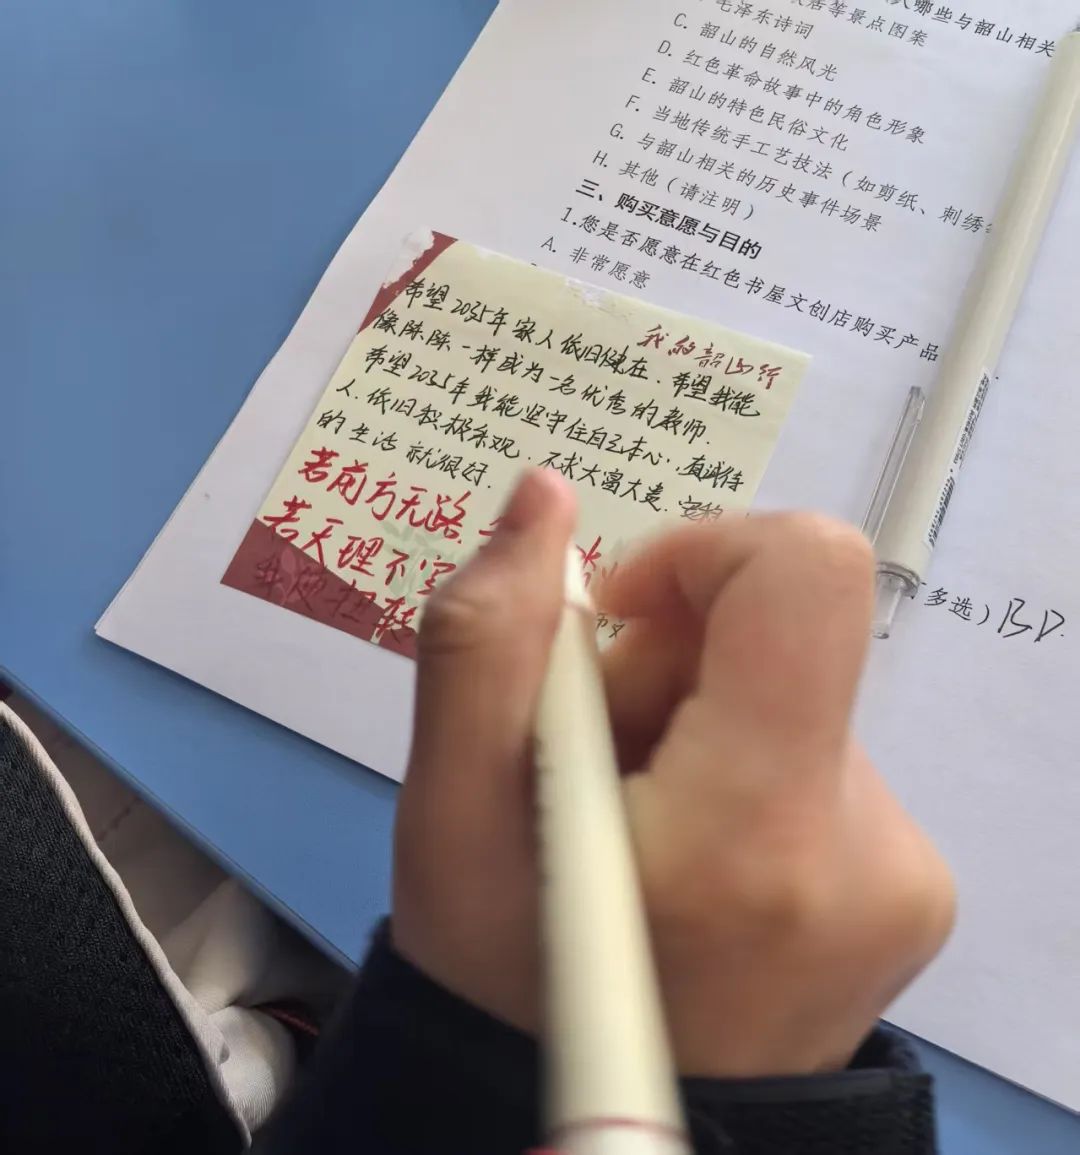 哪些与韶山相关
等景点图案
毛泽东诗词
C. 韶山的自然风光
D. 红色革命故事中的角色形象
E. 韶山的特色民俗文化
F. 当地传统手工艺技法（如剪纸、刺绣
G. 与韶山相关的历史事件场景
H. 其他（请注明）
三、购买意愿与目的
1.您是否愿意在红色书屋文创店购买产品
A. 非常愿意
多选）BD.
我的韶山行
希望2035年家人依旧健在、希望我能
像陈陈一样成为一名优秀的教师.
希望2035年我能坚守住自己本心、真诚待
人、依旧积极乐观、不求大富大贵、安稳
的生活就很好.
若前方无路
若天理不
我便扭转